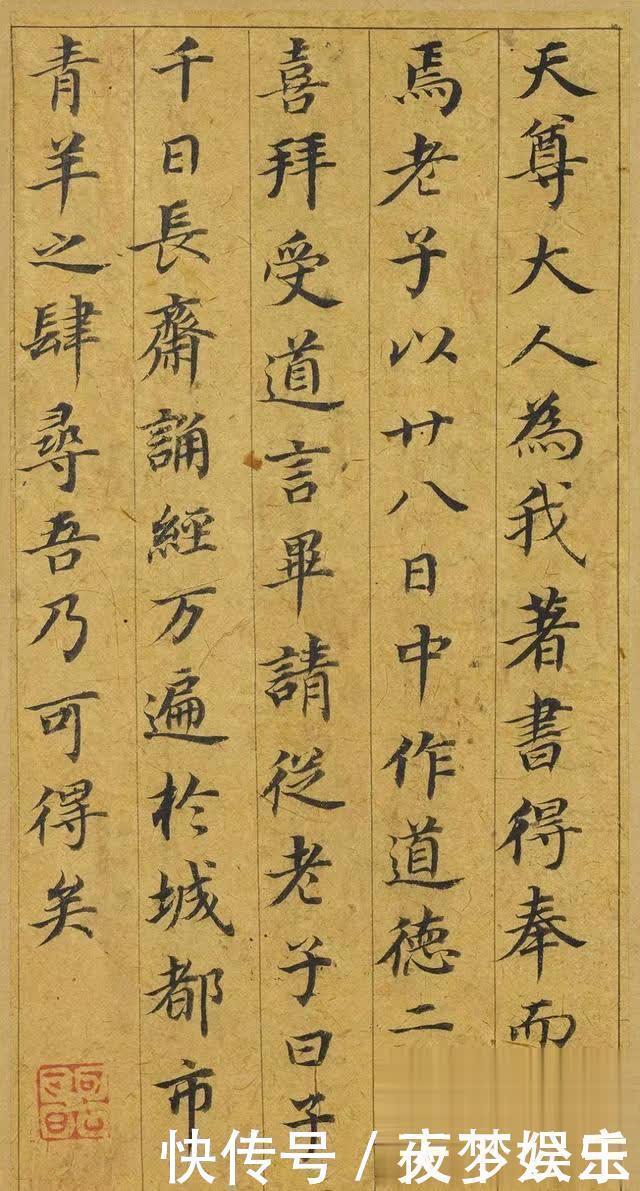 天尊大人為我著書得奉而
焉老子以廿八日中作道德二
喜拜受道言畢請從老子曰子
千日長齋誦經万遍於城都市
青羊之肆尋吾乃可得矣
快传号 / 夜梦娱乐